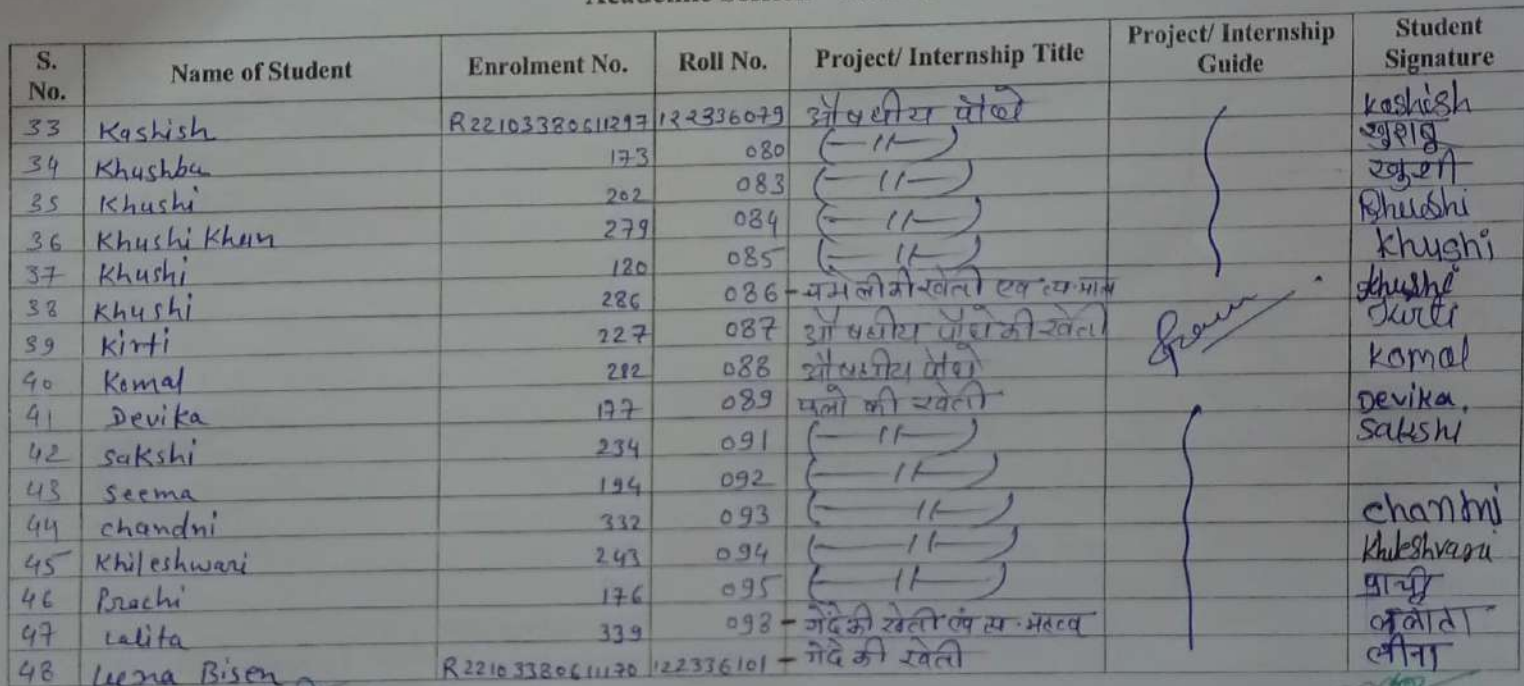 S. No. Name of Student Enrolment No. Roll No. Project/ Internship Title Project/ Internship Guide Student Signature
33 Kashish R22103380611297 122336079 औषधीय पौधे Kashish
34 Khushbu 173 080 (—11—) खुशबू
35 Khushi 202 083 (—11—) खुशी
36 Khushi Khan 279 084 (—11—) Khushi
37 Khushi 120 085 (—11—) Khushi
38 Khushi 286 086 - चमेली की खेती एवं Khushi
39 Kirti 227 087 औषधीय पौधे की खेती Kirti
40 Komal 282 088 औषधीय पौधे Komal
41 Devika 177 089 की खेती Devika,
42 Sakshi 234 091 (—11—) Sakshi
43 Seema 194 092 (—11—)
44 Chandni 332 093 (—11—) Chandni
45 Khileshwari 243 094 (—11—) Khileshvari
46 Prachi 176 095 (—11—) प्राची
47 Lalita 339 098 - गेंदे की खेती एवं व्य. महत्व ललीता
48 Leena Bisen R22103380611170 122336101 - गेंदे की खेती लीना